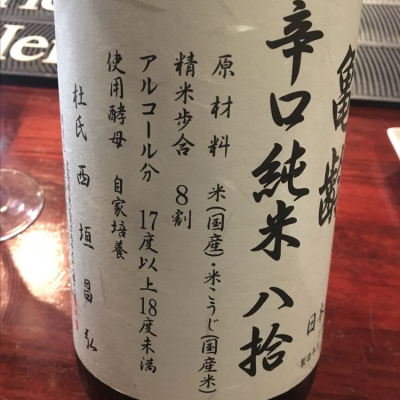 亀齢
辛口純米 八拾
日本
原材料 米(国産)・米こうじ(国産米)
精米歩合 8割
アルコール分 17度以上18度未満
使用酵母 自家培養
杜氏 西垣昌弘